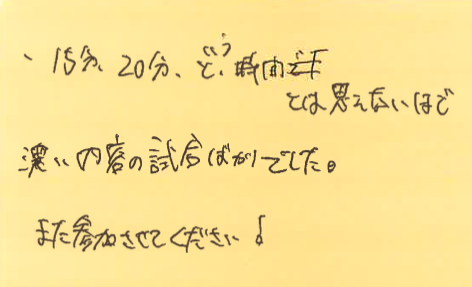 、15分、20分、という時間
とは思えないほど
濃い内容の試合ばかりでした。
また参加させてください!